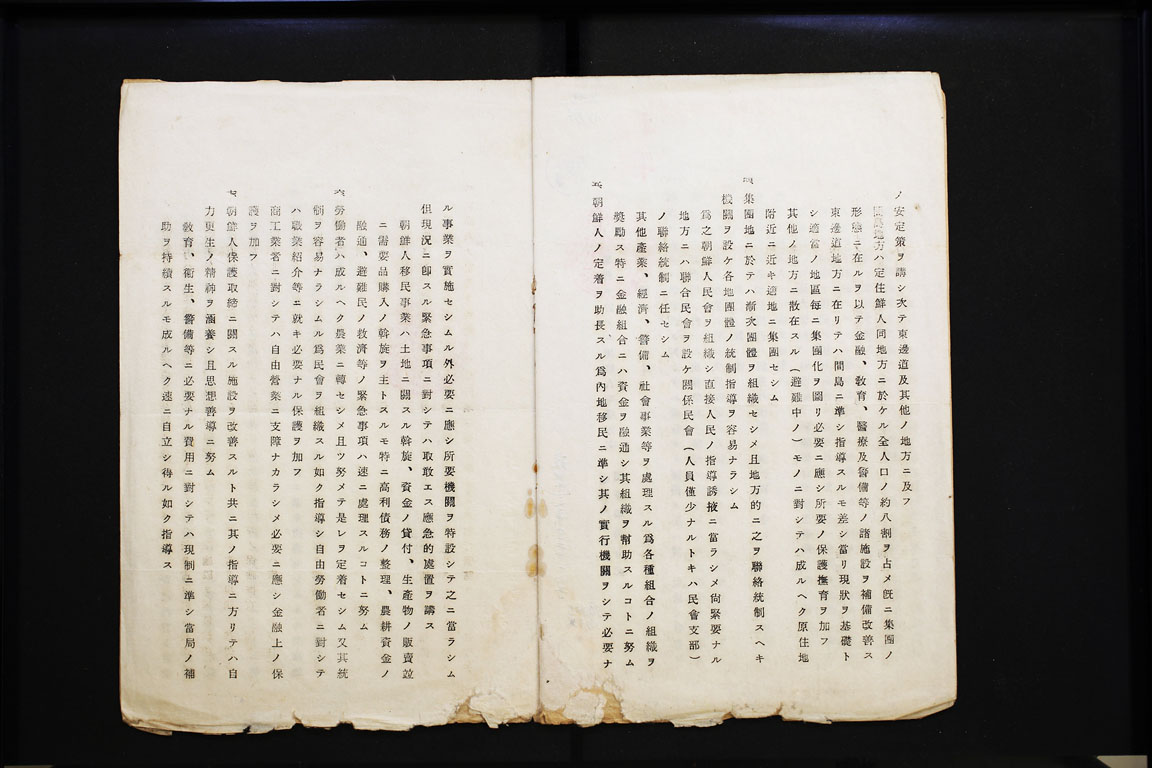 ノ安定策ヲ講シ次テ東邊道及其他ノ地方ニ及フ
間島地方ハ定住鮮人同地方ニ於ケル全人口ノ約八割ヲ占メ旣ニ集團ノ
形態ニ在ルヲ以テ金融、敎育、醫療及警備等ノ諸施設ヲ補備改善ス
東邊道地方ニ在リテハ間島ニ準シ指導スルモ差シ當リ現狀ヲ基礎ト
シ適當ノ地區每ニ集團化ヲ圖リ必要ニ應シ所要ノ保護撫育ヲ加フ
其他ノ地方ニ散在スル(避難中ノ)モノニ對シテハ成ルヘク原住地
附近ニ近キ適地ニ集團セシム
集團地ニ於テハ漸次團體ヲ組織セシメ且地方的ニ之ヲ聯絡統制スヘキ
機關ヲ設ケ各地團體ノ統制指導ヲ容易ナラシム
爲之朝鮮人民會ヲ組織シ直接人民ノ指導誘掖ニ當ラシメ尙緊要ナル
地方ニハ聯合民會ヲ設ケ關係民會(人員僅少ナルトキハ民會支部)
ノ聯絡統制ニ任セシム
其他產業、經濟、警備、社會事業等ヲ處理スル爲各種組合ノ組織ヲ
奬勵ス特ニ金融組合ニハ資金ヲ融通シ其組織ヲ幇助スルコトニ努ム
五、朝鮮人ノ定着ヲ助長スル爲內地移民ニ準シ其ノ實行機關ヲシテ必要ナ
ル事業ヲ實施セシムル外必要ニ應シ所要機關ヲ特設シテ之ニ當ラシム
但現況ニ卽スル緊急事項ニ對シテハ取敢エス應急的處置ヲ講ス
朝鮮人移民事業ハ土地ニ關スル斡旋、資金ノ貸付、生產物ノ販賣竝
ニ需要品購入ノ斡旋ヲ主トスルモ特ニ高利債務ノ整理、農耕資金ノ
融通、避難民ノ救濟等ノ緊急事項ハ速ニ處理スルコトニ努ム
六、勞働者ハ成ルヘク農業ニ轉セシメ且ツ努メテ是レヲ定着セシム又其統
制ヲ容易ナラシムル爲民會ヲ組織スル如ク指導シ自由勞働者ニ對シテ
ハ職業紹介等ニ就キ必要ナル保護ヲ加フ
商工業者ニ對シテハ自由營業ニ支障ナカラシメ必要ニ應シ金融上ノ保
護ヲ加フ
七、朝鮮人保護取締ニ關スル施設ヲ改善スルト共ニ其ノ指導ニ方リテハ自
力更生ノ精神ヲ涵養シ且思想善導ニ努ム
敎育、衞生、警備等ニ必要ナル費用ニ對シテハ現制ニ準シ當局ノ補
助ヲ持續スルモ成ルヘク速ニ自立シ得ル如ク指導ス